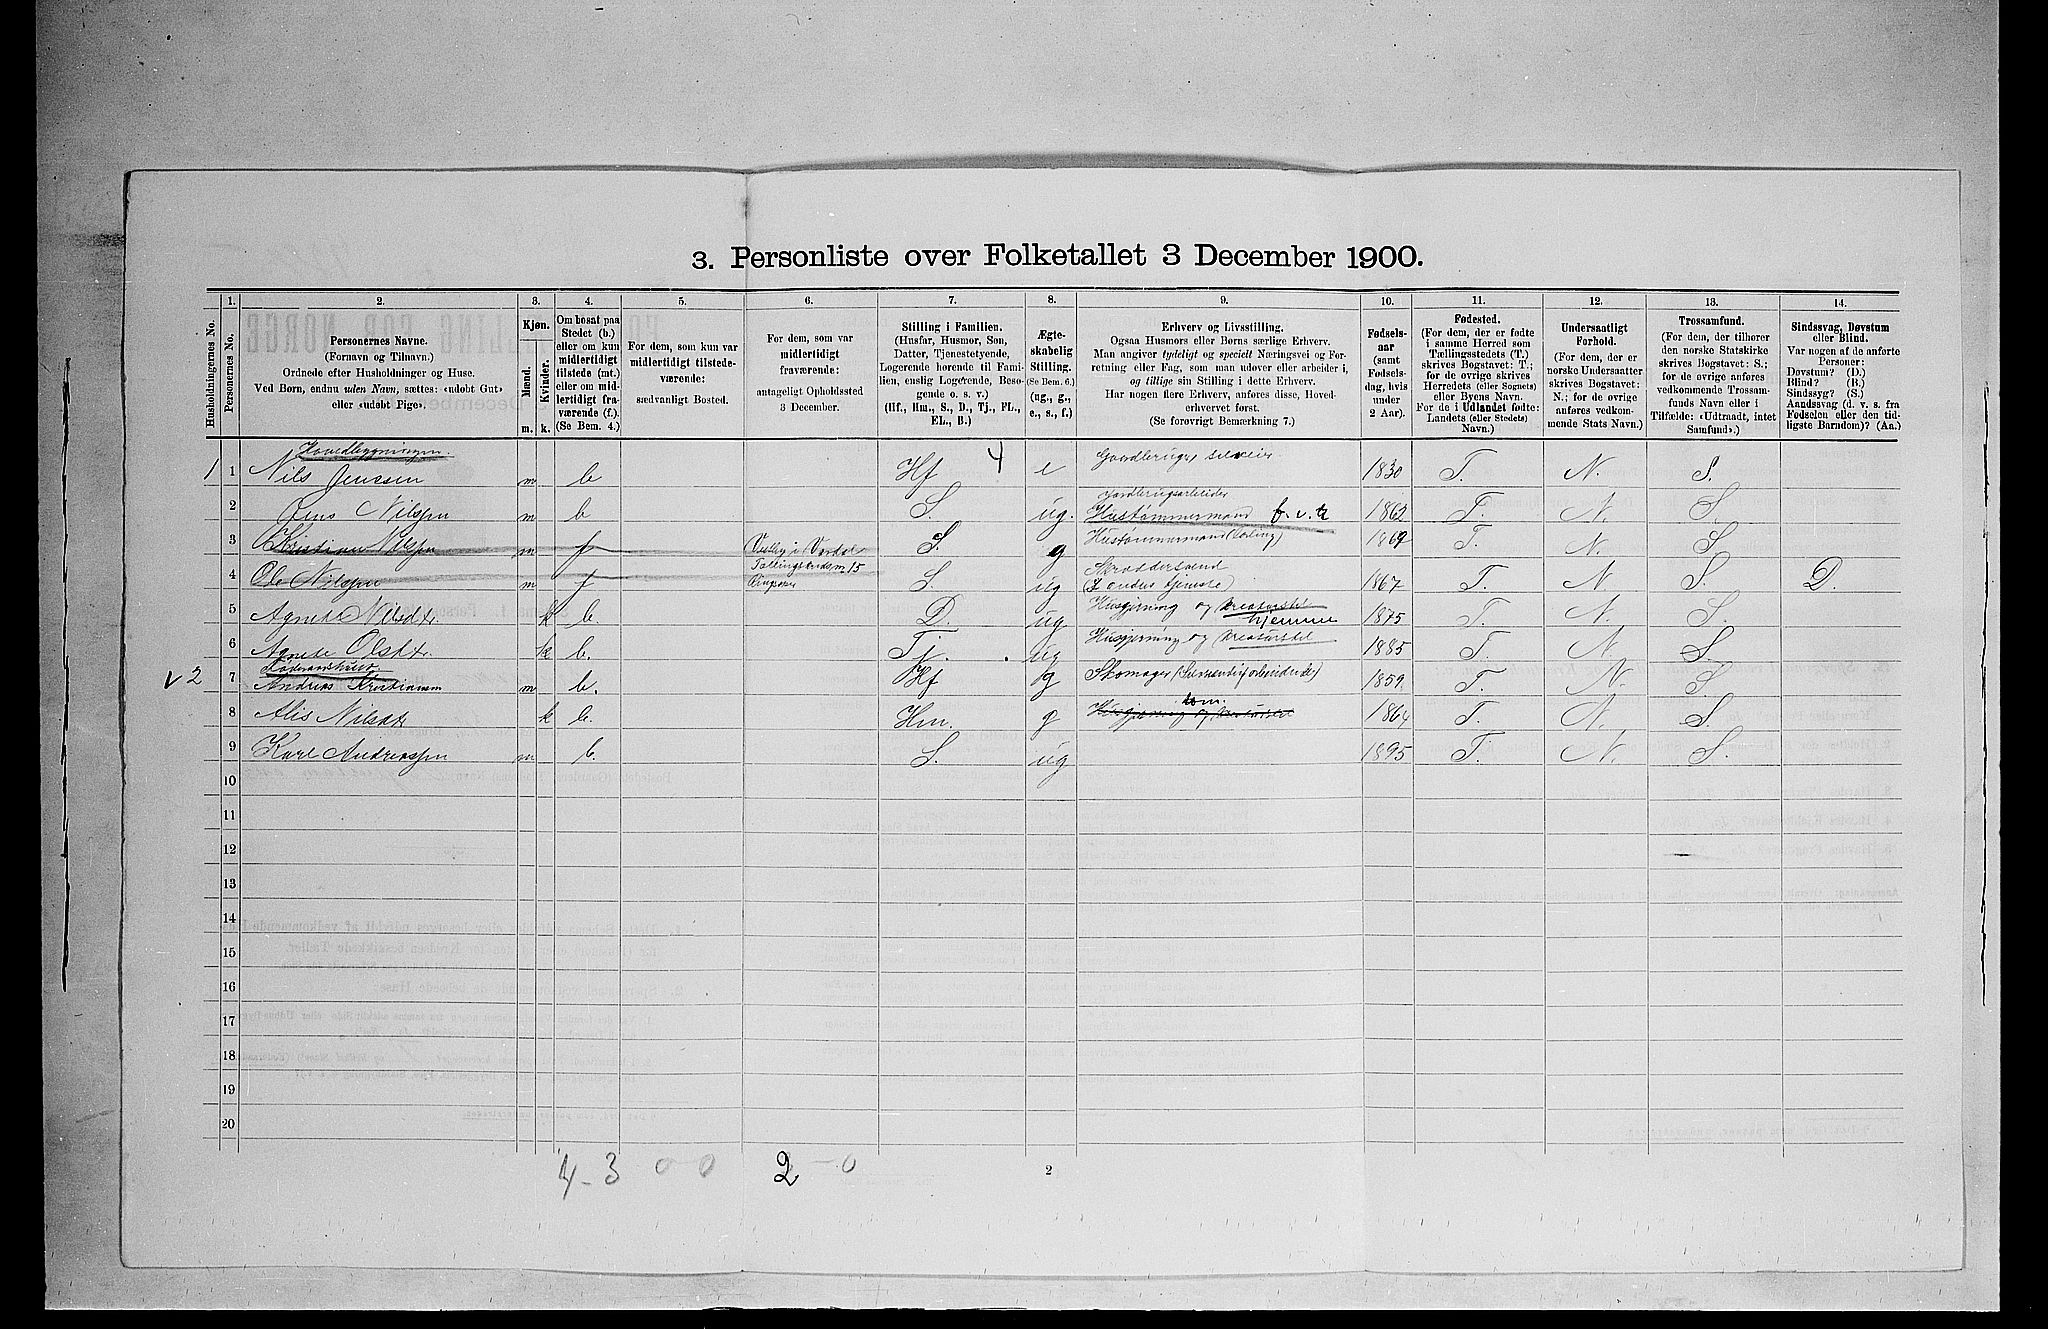 3. Personliste over Folketallet 3 December 1900.
Husholdningernes No.
1.
Personernes No.
2.
Personernes Navne.
(Fornavn og Tilnavn.)
Ordnede efter Husholdninger og Huse.
Ved Børn, endnu uden Navn, sættes: «udøbt Gut»
eller «udøbt Pige».
3.
Kjøn.
Mænd.
Kvinder.
m. k.
4.
Om bosat paa
Stedet (b.)
eller om kun
midlertidigt
tilstede (mt.)
eller om mid-
lertidigt fra-
værende (f.).
(Se Bem. 4.)
5.
For dem, som kun var
midlertidigt tilstede-
værende:
sædvanligt Bosted.
6.
For dem, som var
midlertidigt
fraværende:
antageligt Opholdssted
3 December.
7.
Stilling i Familien.
(Husfar, Husmor, Søn,
Datter, Tjenestetyende,
Logerende hørende til Fami-
lien, enslig Logerende, Besø-
gende o. s. v.)
(Hf., Hm., S., D., Tj., FL.,
EL., B.)
8.
Ægte-
skabelig
Stilling.
(Se Bem. 6.)
(ug., g.,
e., s., f.)
9.
Erhverv og Livsstilling.
Ogsaa Husmors eller Børns særlige Erhverv.
Man angiver tydeligt og specielt Næringsvei og For-
retning eller Fag, som man udøver eller arbeider i,
og tillige sin Stilling i dette Erhverv.
Har nogen flere Erhverv, anføres disse, Hoved-
erhvervet først.
(Se forøvrigt Bemærkning 7.)
10.
Fødsels-
aar
(samt
Fødsels-
dag, hvis
under
2 Aar).
11.
Fødested.
(For dem, der er fødte
i samme Herred som
Tællingsstedets (T.)
skrives Bogstavet: T.;
for de øvrige skrives
Herredets (eller Sognets)
eller Byens Navn.
For de i Udlandet fødte:
Landets (eller Stedets)
Navn.)
12.
Undersaatligt
Forhold.
(For dem, der er
norske Undersaatter
skrives Bogstavet:
N.; for de øvrige
anføres vedkom-
mende Stats Navn.)
13.
Trossamfund.
(For dem, der tilhører
den norske Statskirke
skrives Bogstavet: S.;
for de øvrige anføres
vedkommende Trossam-
funds Navn eller i
Tilfælde: «Udtraadt, intet
Samfund».)
14.
Sindssvag, Døvstum
eller Blind.
Var nogen af de anførte
Personer:
Døvstum? (D.)
Blind? (B.)
Sindssyg? (S.)
Aandssvag (d. v. s. fra
Fødselen eller den tid-
ligste Barndom)? (Aa.)
Hovedbygningen.
1 1 Nils Jenssen m b Hf 4 e Gaardbruger selveier 1830 T. N. S.
Jordbrugsarbeider
2 Jens Nilssen m b S. ug. Hustømmermand f. v. 1862 T. N. S.
3 Kristian Nilssen m f Vestby i Vardal S. g Hustømmermand 1869 T. N. S
4 Ole Nilssen m f S. ug Skræddersvend 1867 T. N. S. D.
5 Agnete Nilsdtr. k b. D. ug Husgjerning og Kreaturstel hjemme 1875 T. N. S.
6 Agnete Olsdtr. k b. Tj. ug Husgjerning og Kreaturstel 1885 T. N. S.
Føderaadshuset
v 2 7 Andreas Kristiansen m b. Hf g Skomager 1859. T. N. S
8 Alis Nilsdtr k b. Hm. g Husgjerning og Kreaturstel 1864 T. N. S.
9 Karl Andreassen m b. S. ug 1895 T. N. S.
10
11
12
13
14
15
16
17
18
19
20
4-3 0-0 2-0
2